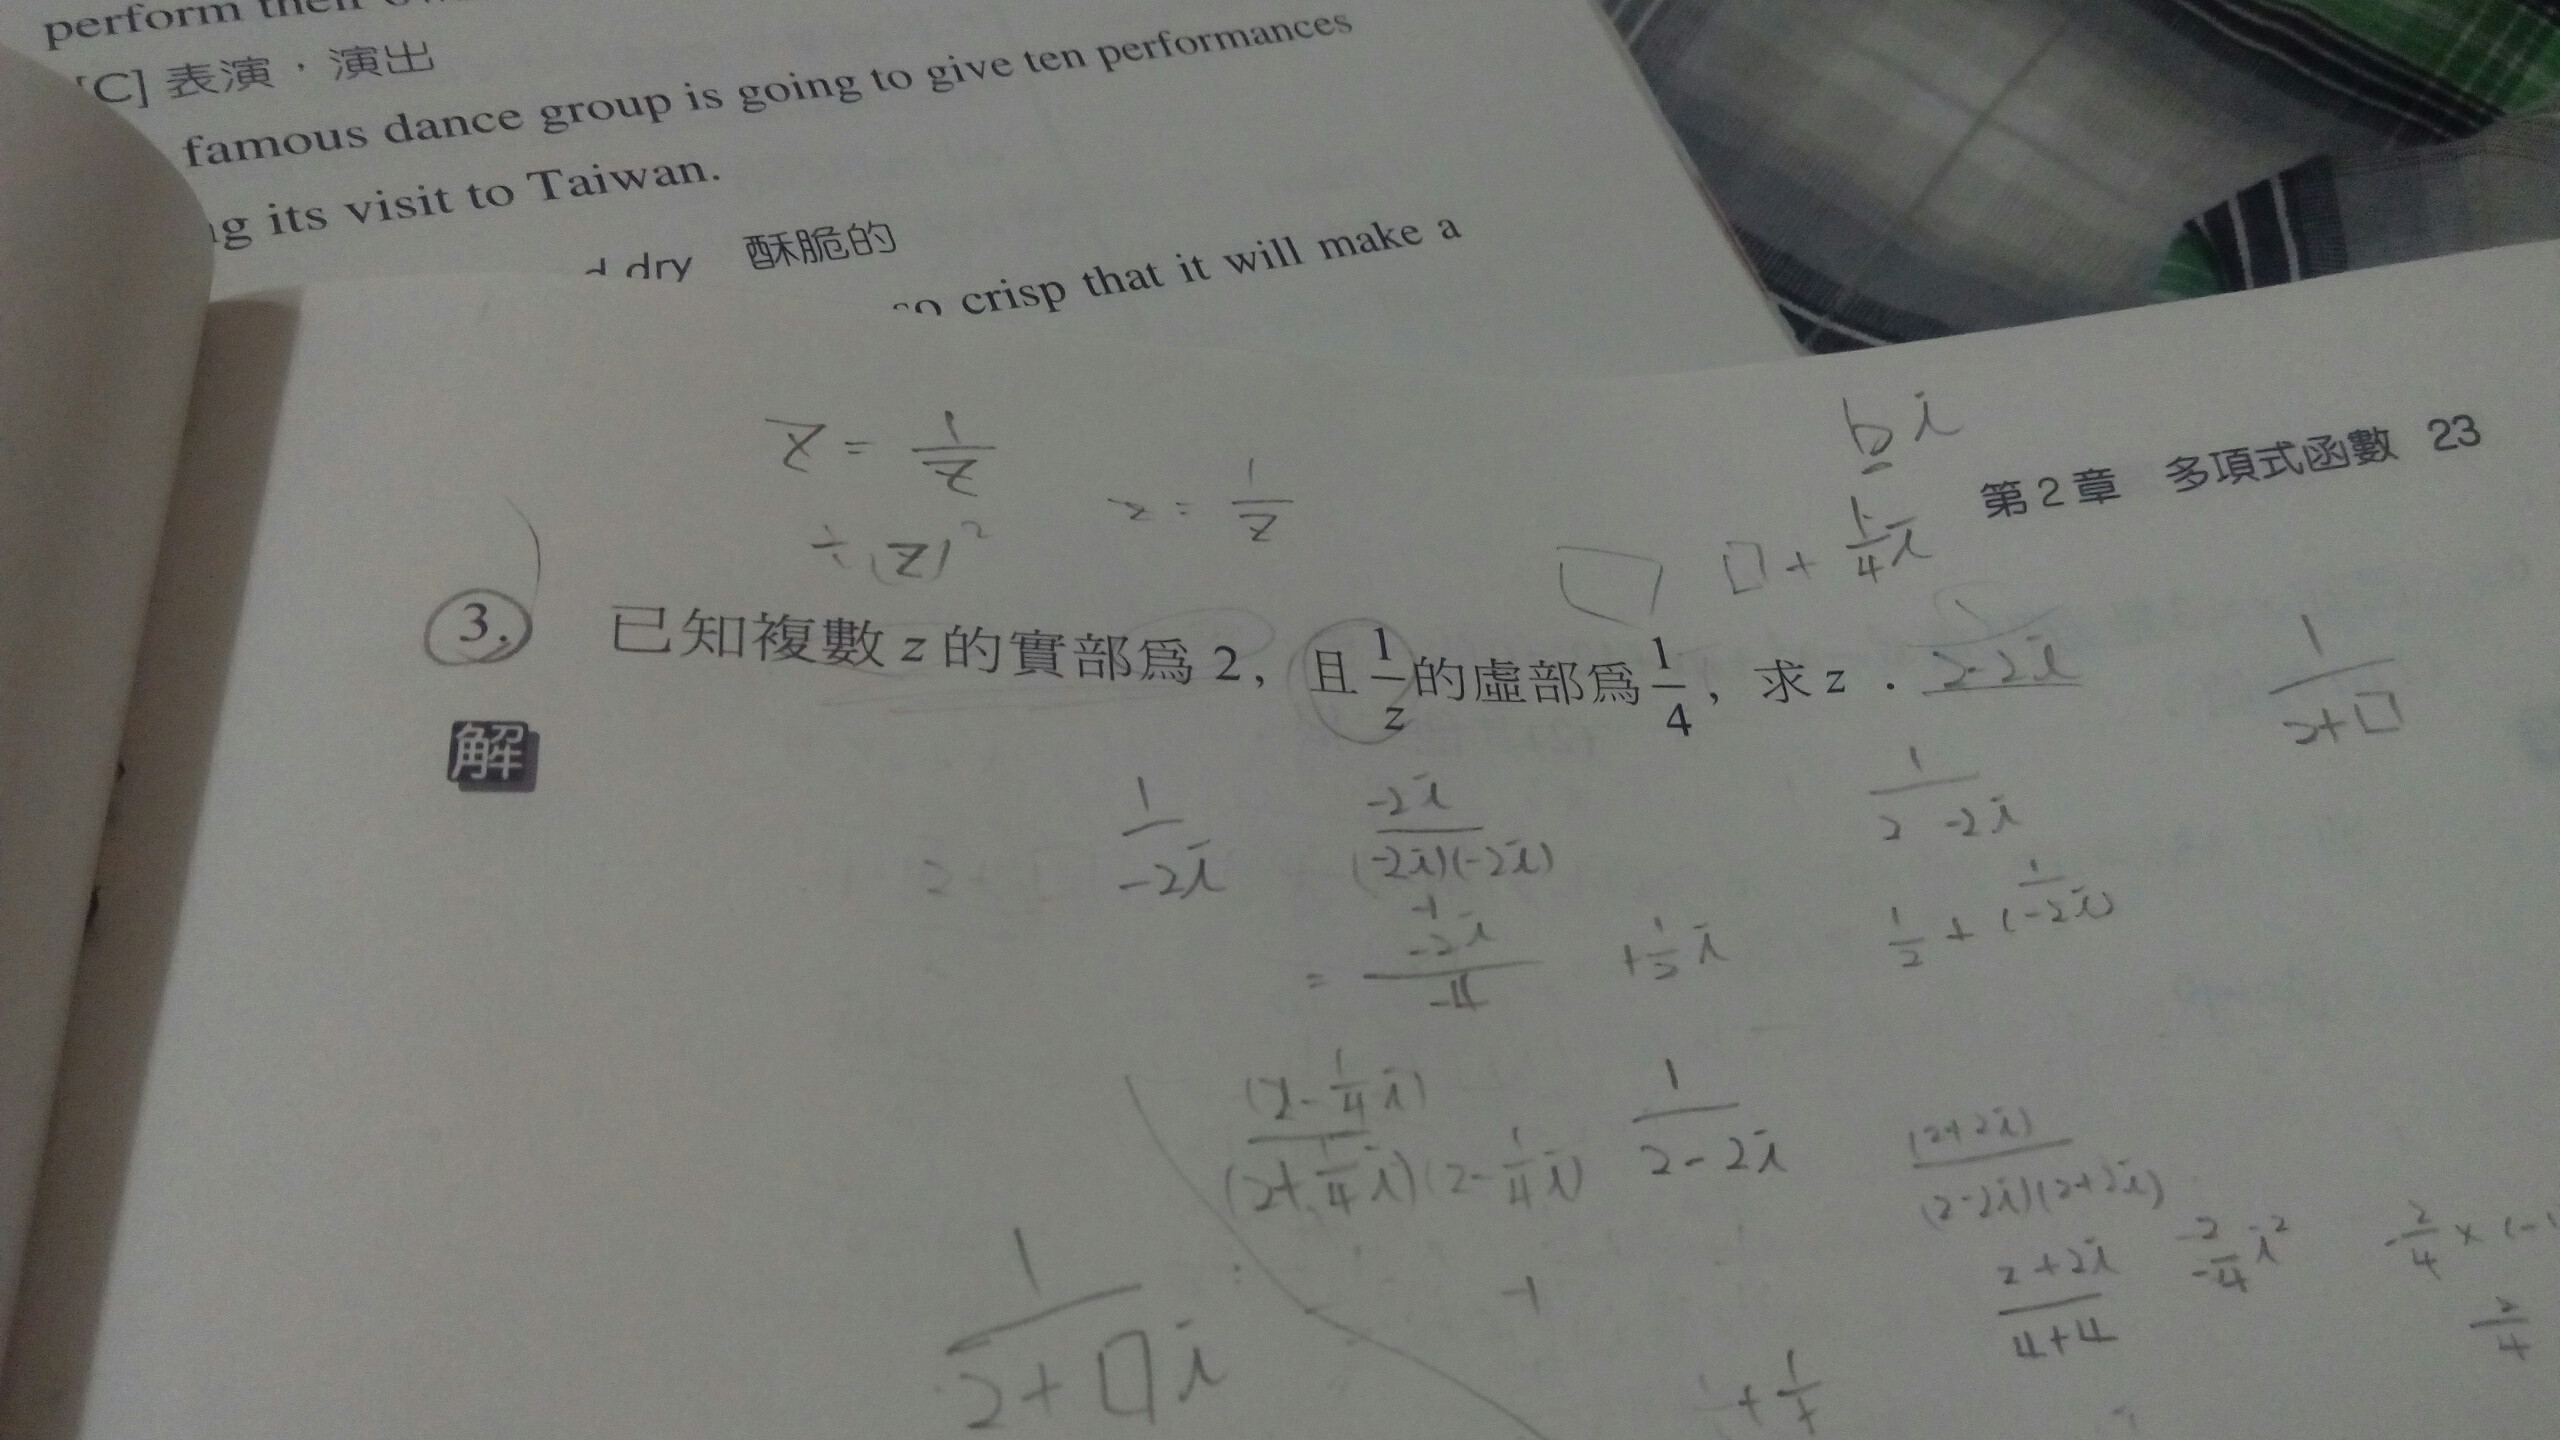 perform their
[C] 表演，演出
famous dance group is going to give ten performances
its visit to Taiwan.
dry 酥脆的
so crisp that it will make a
bi
z = 1/z
z = 1/z
第2章 多項式函數 23
÷(z)²
□ □ + 1/4 i
3. 已知複數 z 的實部為 2，且 1/z 的虛部為 1/4，求 z . 2-2i
1/(2+□)
解
1/(-2i) -2i/((-2i)(-2i)) 1/(2-2i)
= -2i/-4 +1/2 i 1/2 + 1/(-2i)
(2-1/4 i)/((2+1/4 i)(2-1/4 i)) 1/(2-2i) (2+2i)/((2-2i)(2+2i))
(2+2i)/(4+4) -2/-4 i² -2/4 × (-1
-1 2/4
1/(2+□i)